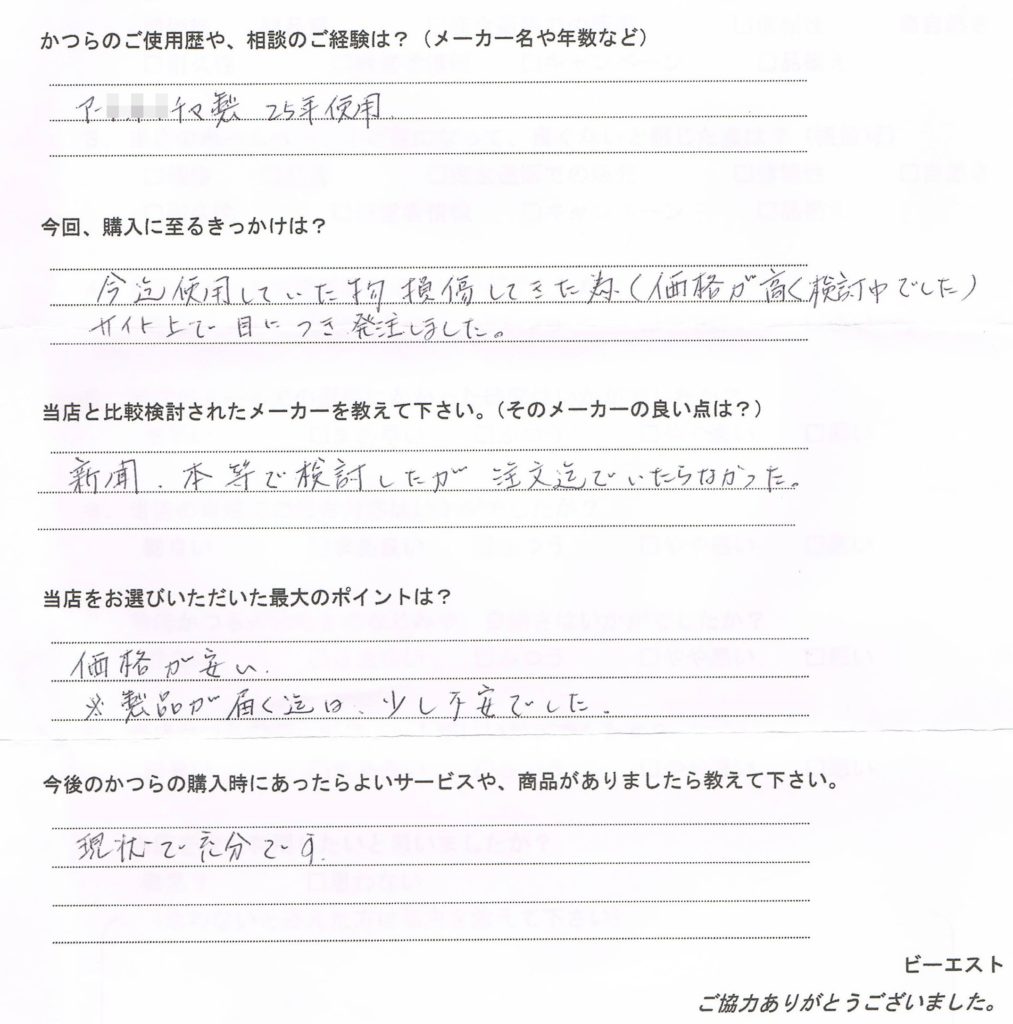 かつらのご使用歴や、相談のご経験は？（メーカー名や年数など）
製 25年使用.
今回、購入に至るきっかけは？
今迄使用していた物損傷してきた為（価格が高く検討中でした）
サイト上で目につき発注しました。
当店と比較検討されたメーカーを教えて下さい。（そのメーカーの良い点は？）
新聞、本等で検討したが 注文迄でいたらなかった。
当店をお選びいただいた最大のポイントは？
価格が安い.
※製品が届く迄は、少し不安でした.
今後のかつらの購入時にあったらよいサービスや、商品がありましたら教えて下さい。
現状で充分です.
ビーエスト
ご協力ありがとうございました。